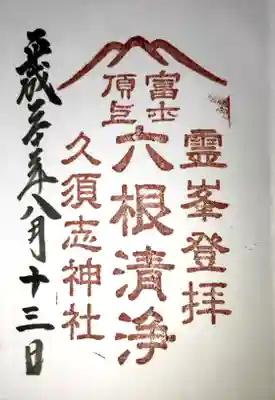 霊峯登拝
富士
頂上
六根清浄
久須志神社
平成二十年八月十三日